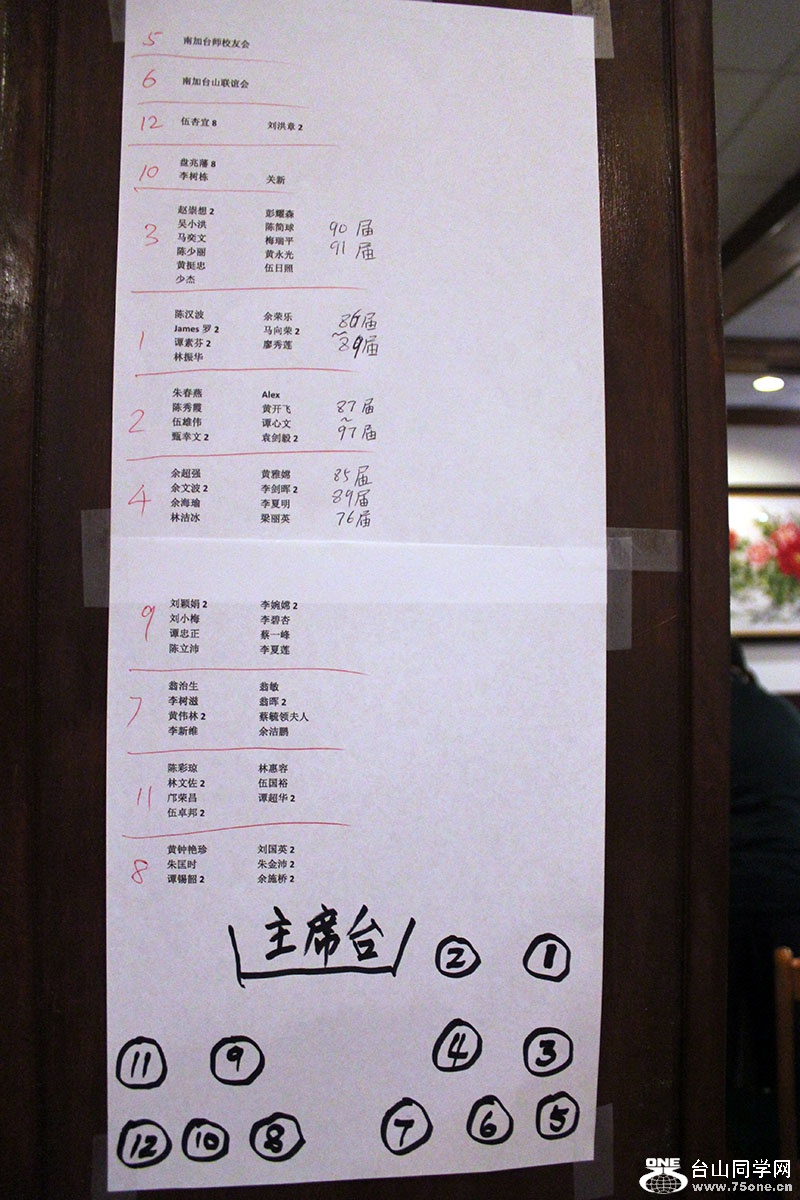 5 南加台师校友会
6 南加台山联谊会
12 伍杏宣 8 刘洪章 2
10 盘兆藩 8
李树栋 关新
3 赵崇想 2 彭耀森
吴小洪 陈简球 90届
马奕文 梅瑞平 91届
陈少丽 黄永光
黄挺忠 伍日照
少杰
1 陈汉波 余荣乐 86届
James 罗 2 马向荣 2 ~89届
谭素芬 2 廖秀莲
林振华
2 朱春燕 Alex
陈秀霞 黄开飞 87届
伍雄伟 谭心文 ~
甄幸文 2 袁剑毅 2 97届
4 余超强 黄雅嫦 85届
余文波 2 李剑晖 2 89届
余海瑜 李夏明 76届
林洁冰 梁丽英
9 刘颖娟 2 李婉嫦 2
刘小梅 李碧杏
谭忠正 蔡一峰
陈立沛 李夏莲
7 翁治生 翁敏
李树滋 翁晖 2
黄伟林 2 蔡毓领夫人
李新维 余洁鹏
11 陈彩琼 林惠容
林文佐 2 伍国裕
邝荣昌 谭超华 2
伍卓邦 2
8 黄钟艳珍 刘国英 2
朱匡时 朱金沛 2
谭锡韶 2 余施桥 2
主席台
2 1
11 9 4 3
12 10 8 7 6 5
ONE 台山同学网
www.75one.cn